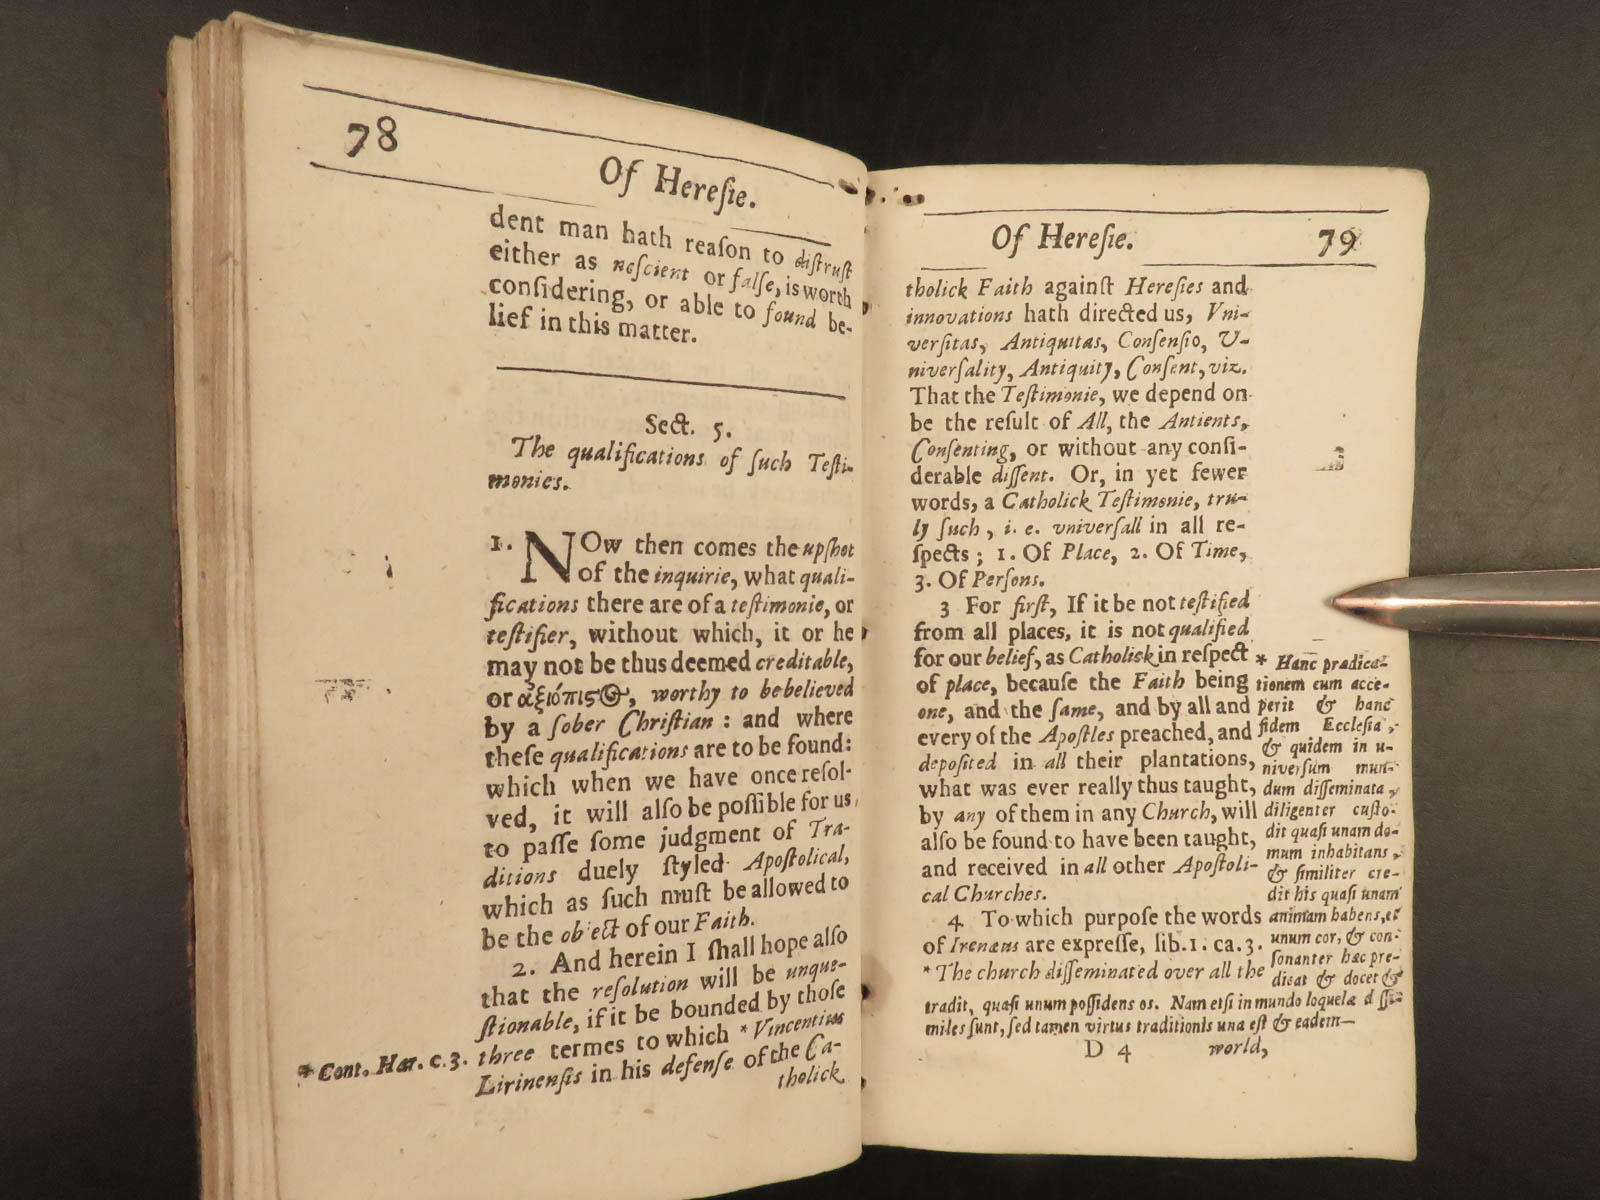 78
Of Hereſie.
dent man hath reaſon to diſtruſt
either as neſcient or falſe, is worth
conſidering, or able to found be-
lief in this matter.
Sect. 5.
The qualifications of ſuch Teſti-
monies.
1. NOw then comes the upſhot
of the inquirie, what quali-
fications there are of a teſtimonie, or
teſtifier, without which, it or he
may not be thus deemed creditable,
or ἀξιόπιςος, worthy to be believed
by a ſober Chriſtian : and where
theſe qualifications are to be found:
which when we have once reſol-
ved, it will alſo be poſſible for us,
to paſſe ſome judgment of Tra-
ditions duely ſtyled Apoſtolical,
which as ſuch muſt be allowed to
be the object of our Faith.
2. And herein I ſhall hope alſo
that the reſolution will be unque-
ſtionable, if it be bounded by thoſe
three termes to which * Vincentius
* Cont. Hær. c.3.
Lirinenſis in his defenſe of the Ca-
tholick
Of Hereſie.
79
tholick Faith against Hereſies and
innovations hath directed us, Vni-
verſitas, Antiquitas, Conſenſio, U-
niverſality, Antiquity, Conſent, viz.
That the Teſtimonie, we depend on
be the reſult of All, the Antients,
Conſenting, or without any conſi-
derable diſſent. Or, in yet fewer
words, a Catholick Teſtimonie, tru-
ly ſuch, i. e. vniverſall in all re-
ſpects ; 1. Of Place, 2. Of Time,
3. Of Perſons.
3 For firſt, If it be not teſtified
from all places, it is not qualified
for our belief, as Catholick in reſpect
of place, becauſe the Faith being
one, and the ſame, and by all and
every of the Apoſtles preached, and
depoſited in all their plantations,
what was ever really thus taught,
by any of them in any Church, will
alſo be found to have been taught,
and received in all other Apoſtoli-
cal Churches.
4 To which purpoſe the words
of Irenæus are expreſſe, lib.1. ca.3.
* The church diſſeminated over all the
* Hanc prædica-
tionem cum acce-
perit & hanc
fidem Eccleſia,
& quidem in u-
niverſum mun-
dum diſſeminata,
diligenter cuſto-
dit quaſi unam do-
mum inhabitans,
& ſimiliter cre-
dit his quaſi unam
animam habens, et
unum cor, & con-
ſonanter hæc præ-
dicat & docet &
tradit, quaſi unum poſſidens os. Nam etſi in mundo loquelæ diſſi-
miles ſunt, ſed tamen virtus traditionis una eſt & eadem—
D 4
world,